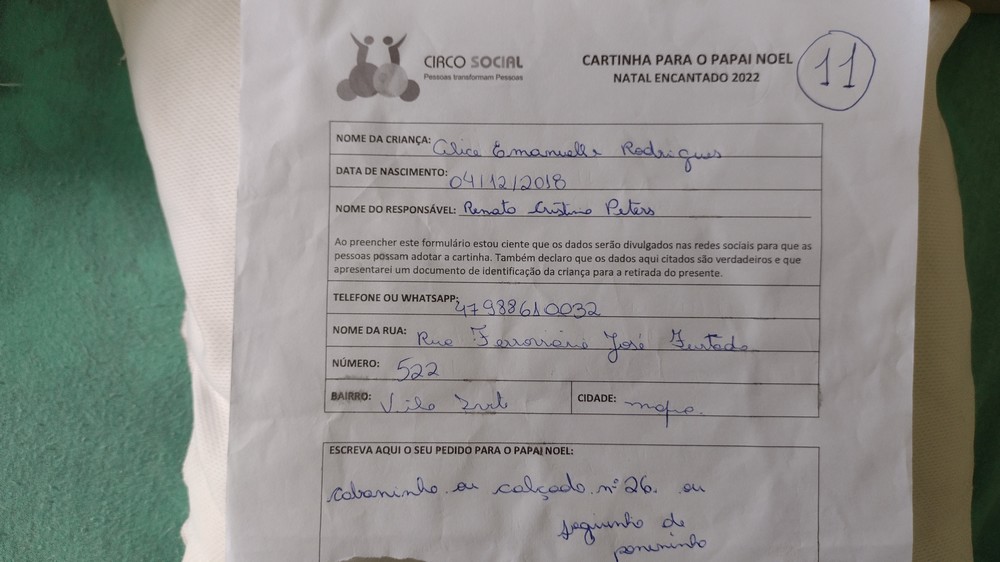 CIRCO SOCIAL
Pessoas transformam Pessoas
CARTINHA PARA O PAPAI NOEL
NATAL ENCANTADO 2022
11
NOME DA CRIANÇA: Alice Emanuelle Rodrigues
DATA DE NASCIMENTO: 04/12/2018
NOME DO RESPONSÁVEL: Renato Cristino Peters
Ao preencher este formulário estou ciente que os dados serão divulgados nas redes sociais para que as
pessoas possam adotar a cartinha. Também declaro que os dados aqui citados são verdadeiros e que
apresentarei um documento de identificação da criança para a retirada do presente.
TELEFONE OU WHATSAPP: 47988610032
NOME DA RUA: Rua Ferroviário José Furtado
NÚMERO: 522
BAIRRO: Vila
CIDADE: mafra.
ESCREVA AQUI O SEU PEDIDO PARA O PAPAI NOEL:
cabaninha ou calçado nº 26. ou
joguinho de
paneninho